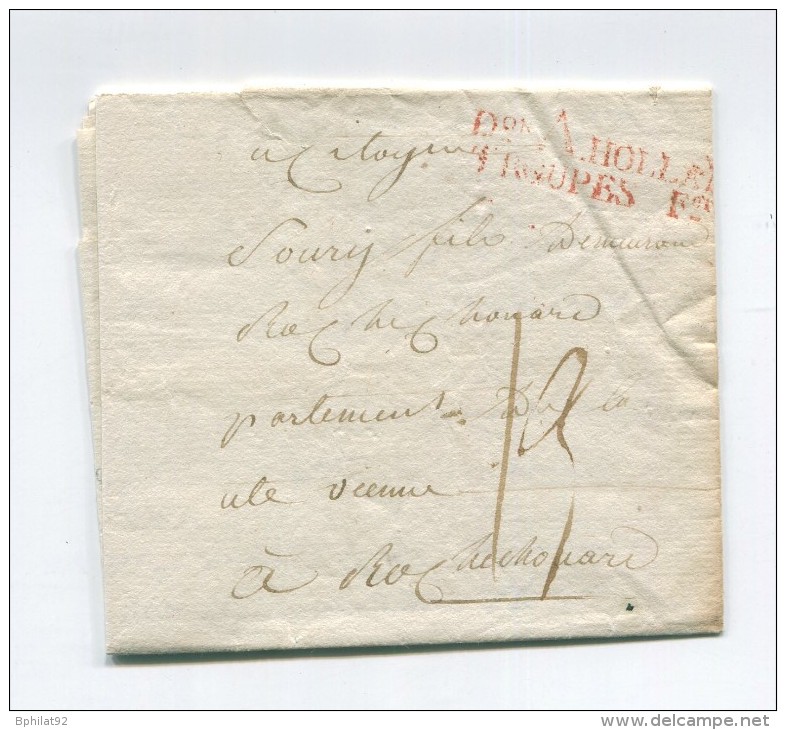 Don 1. HOLLE
TROUPES Fs
au Citoyen
Soury fils Demeurand
Rochechouard
partement De la
ute vienne
à Rochechouard
Bphilat92
delcampe.net